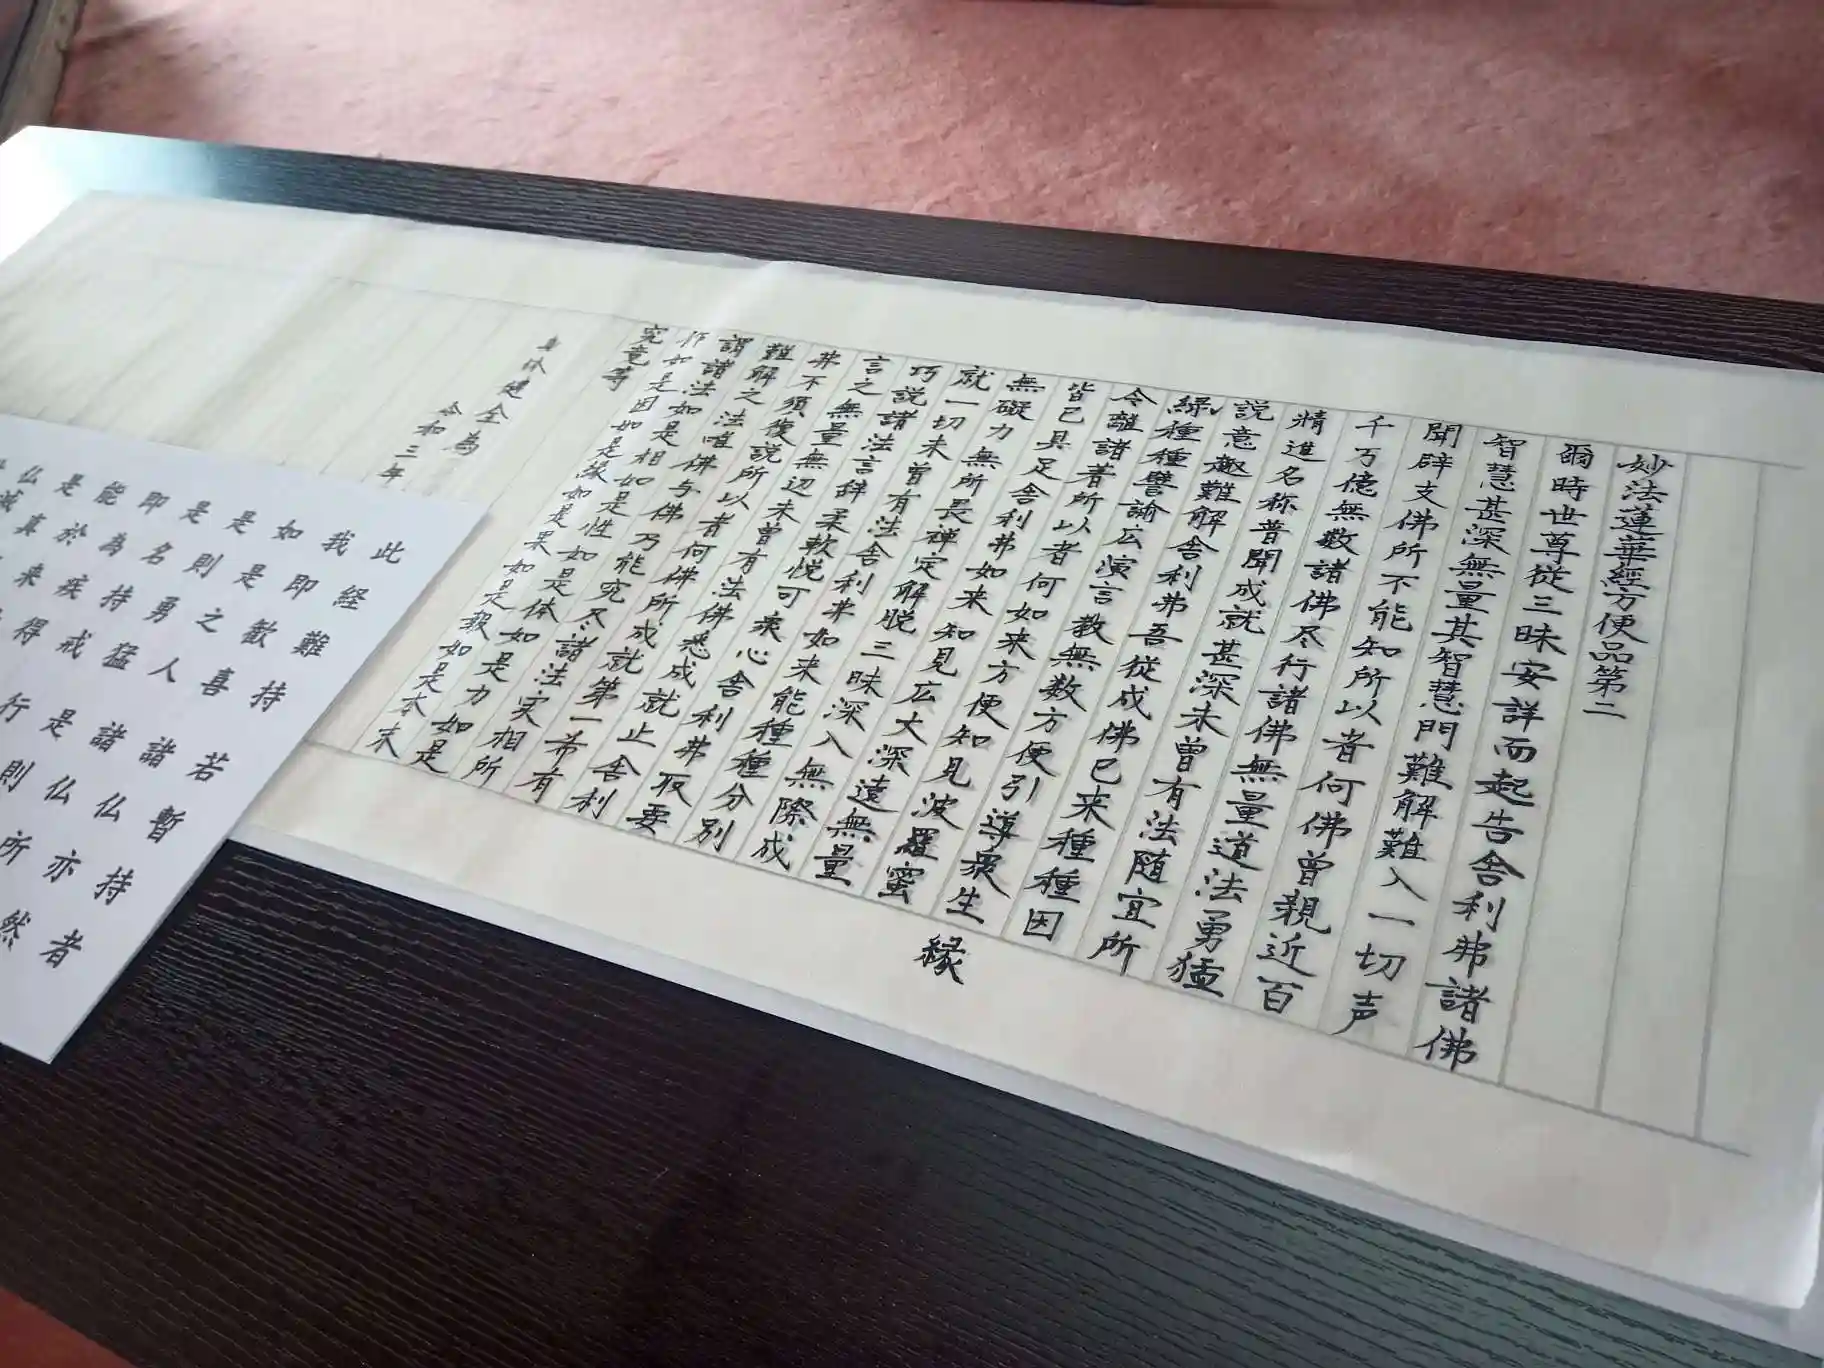 妙法蓮華經方便品第二
爾時世尊從三昧安詳而起告舎利弗諸佛
智慧甚深無量其智慧門難解難入一切声
聞辟支佛所不能知所以者何佛曾親近百
千万億無数諸佛尽行諸佛無量道法勇猛
精進名称普聞成就甚深未曾有法随宜所
説意趣難解舎利弗吾従成佛已来種種因
縁種種譬諭広演言教無数方便引導衆生
令離諸著所以者何如来方便知見波羅蜜
皆已具足舎利弗如来知見広大深遠無量
無礙力無所畏禅定解脱三昧深入無際成
就一切未曾有法舎利弗如来能種種分別
巧説諸法言辞柔軟悦可衆心舎利弗取要
言之無量無辺未曾有法佛悉成就止舎利
弗不須復説所以者何佛所成就第一希有
難解之法唯佛与佛乃能究尽諸法実相所
謂諸法如是相如是性如是体如是力如是
作如是因如是縁如是果如是報如是本末
究竟等
身体健全為
令和三年
縁
此経難持若暫持者
我即歓喜諸仏亦然
如是之人諸仏所
是則勇猛是則
是名持戒行
即為疾得
能於来
是真
仏滅